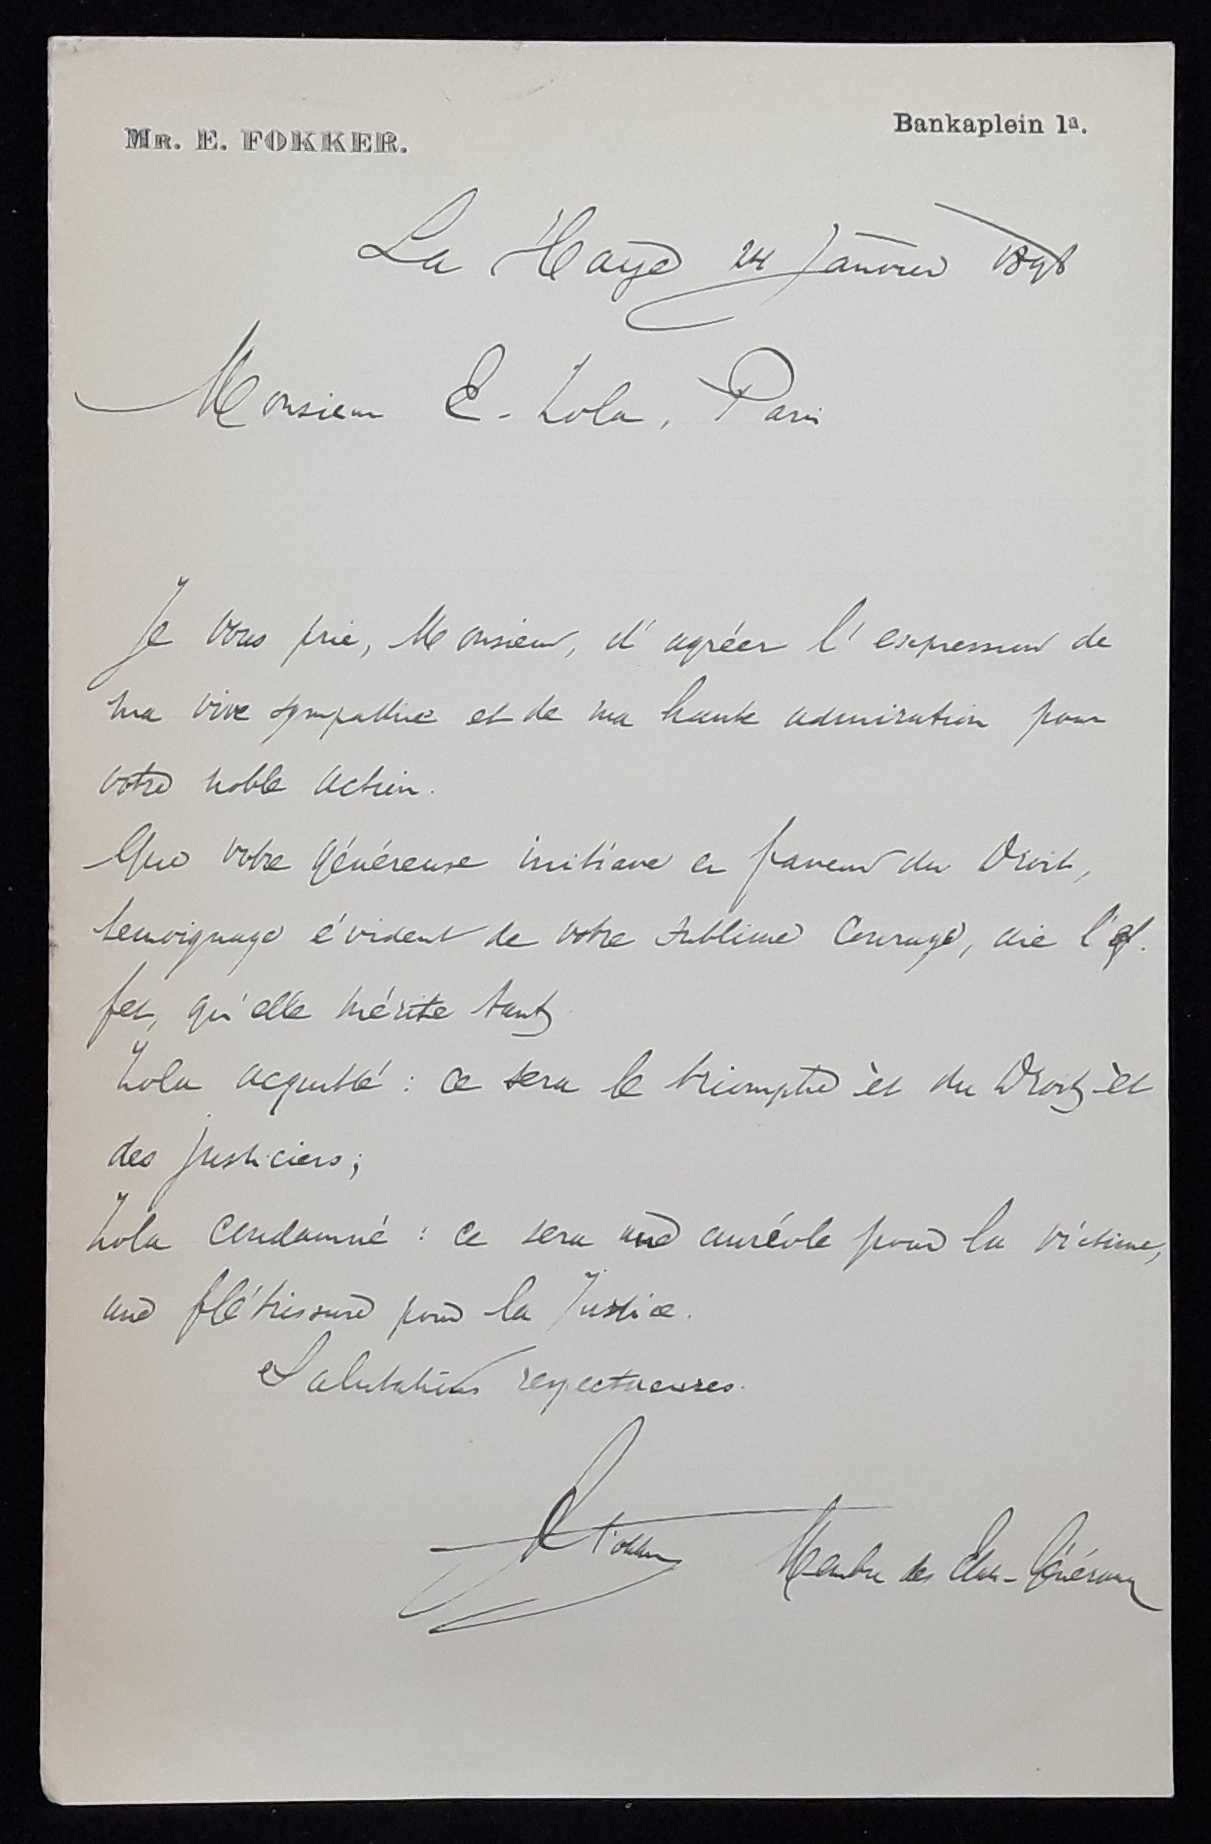 Mr. E. FOKKER.
Bankaplein 1a.
La Haye 24 Janvier 1898
Monsieur E. Zola, Paris
Je vous prie, Monsieur, d'agréer l'expression de
ma vive sympathie et de ma haute admiration pour
votre noble action.
Que votre généreuse initiave en faveur du Droit,
temoignage évident de votre sublime courage, aie l'ef-
fet, qu'elle mérite tant
Zola acquitté : ce sera le triomphe èt du Droit èt
des justiciers;
Zola condamné : ce sera une auréole pour la victime,
une flétrissure pour la Justice.
Salutations respectueuses.
E Fokker Membre des Etats-Généraux